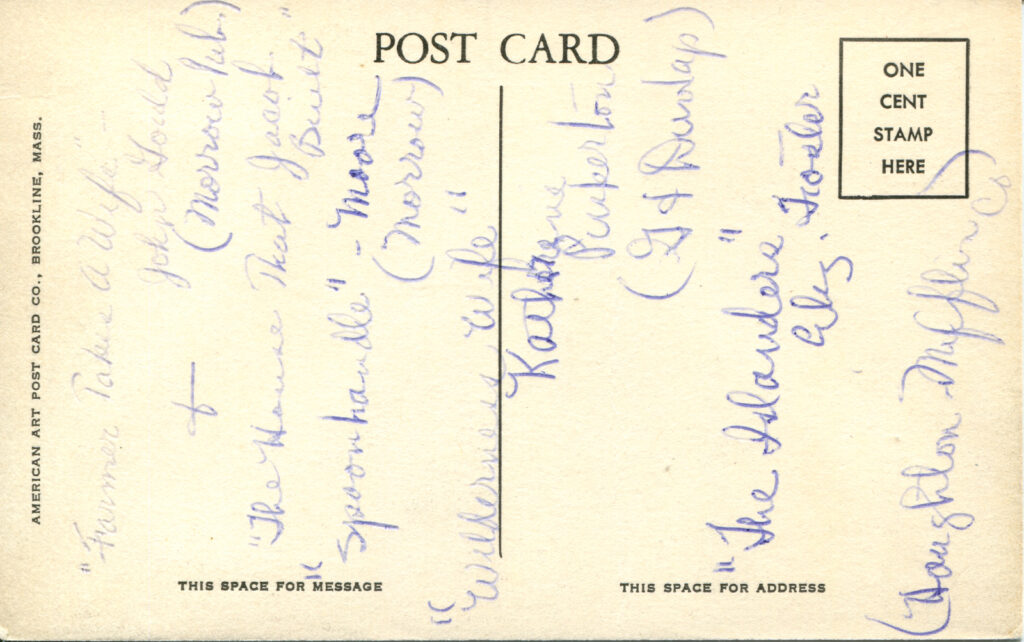 POST CARD
ONE
CENT
STAMP
HERE
AMERICAN ART POST CARD CO., BROOKLINE, MASS.
THIS SPACE FOR MESSAGE
THIS SPACE FOR ADDRESS
"Farmer Takes A Wife"
John Gould
(Morrow Pub.)
+
"The House That Jacob
Built"
"Spoonhandle" - Moore
(Morrow)
"Wilderness Wife"
Katherine
Pinkerton
(G & Dunlap)
"The Islanders"
Eliz. Foster
(Houghton Mifflin Co)